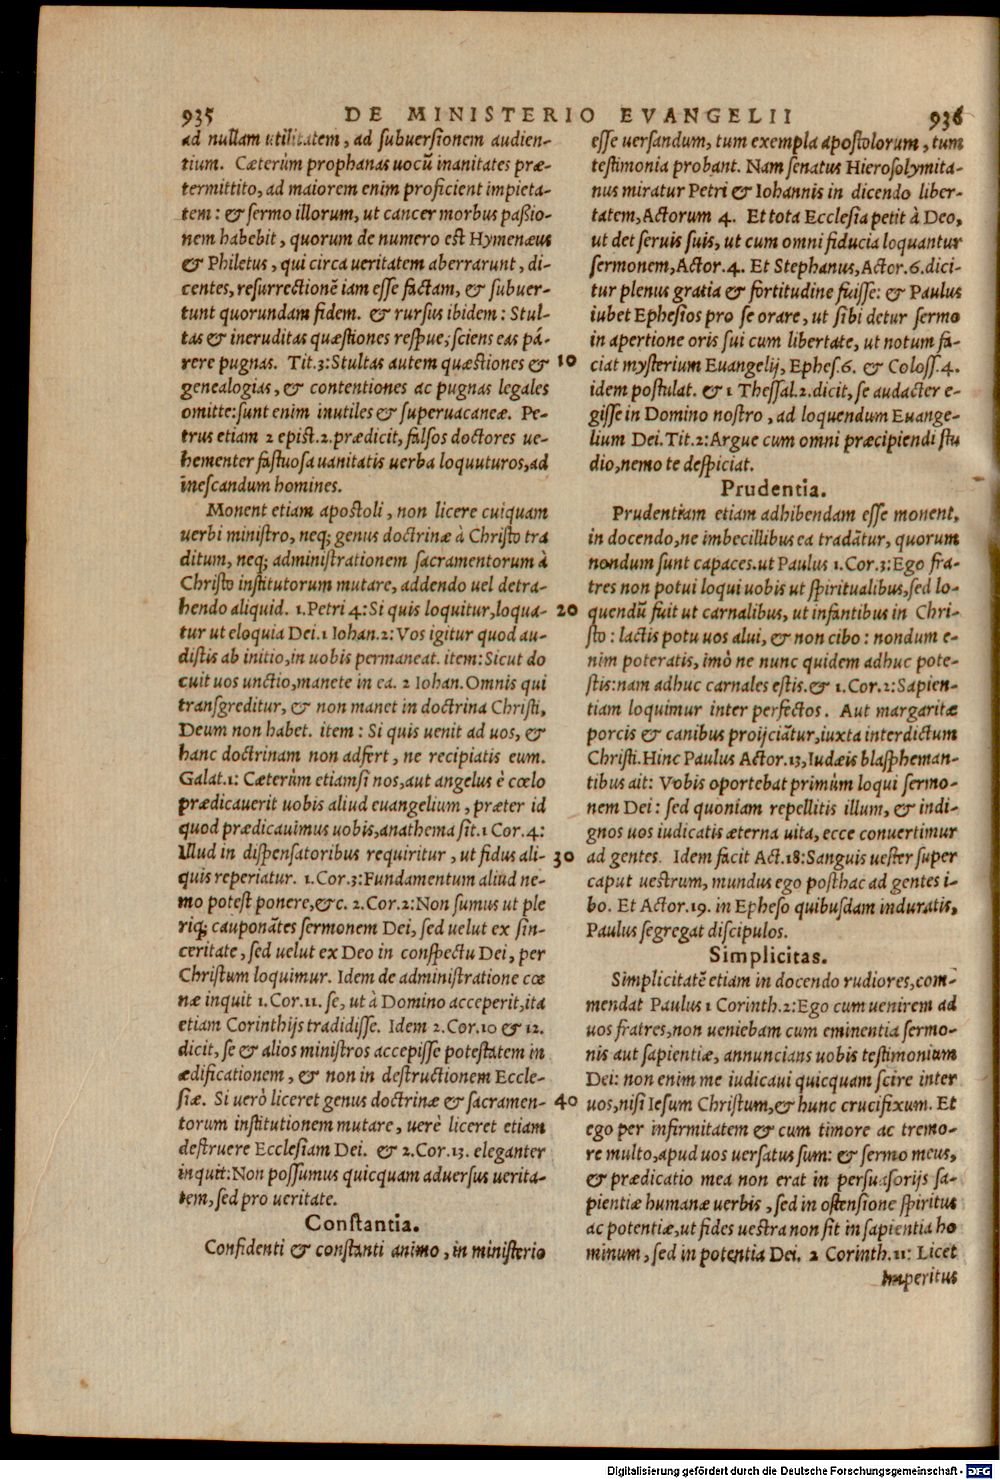 935 DE MINISTERIO EVANGELII 936
ad nullam utilitatem, ad subuersionem audien-
tium. Cæterùm prophanas uocũ inanitates præ-
termittito, ad maiorem enim proficient impieta-
tem: & sermo illorum, ut cancer morbus paßio-
nem habebit, quorum de numero est Hymenæus
& Philetus, qui circa ueritatem aberrarunt, di-
centes, resurrectionẽ iam esse factam, & subuer-
tunt quorundam fidem. & rursus ibidem: Stul-
tas & ineruditas quæstiones respue, sciens eas pá-
rere pugnas. Tit.3: Stultas autem quæstiones & 10
genealogias, & contentiones ac pugnas legales
omitte: sunt enim inutiles & superuacaneæ. Pe-
trus etiam 2 epist.2. prædicit, falsos doctores ue-
hementer fastuosa uanitatis uerba loquuturos, ad
inescandum homines.
Monent etiam apostoli, non licere cuiquam
uerbi ministro, neq; genus doctrinæ à Christo tra
ditum, neq; administrationem sacramentorum à
Christo institutorum mutare, addendo uel detra-
hendo aliquid. 1. Petri 4: Si quis loquitur, loqua- 20
tur ut eloquia Dei. 1 Iohan.2: Vos igitur quod au-
distis ab initio, in uobis permaneat. item: Sicut do
cuit uos unctio, manete in ea. 2 Iohan. Omnis qui
transgreditur, & non manet in doctrina Christi,
Deum non habet. item: Si quis uenit ad uos, &
hanc doctrinam non adfert, ne recipiatis eum.
Galat.1: Cæterùm etiamsi nos, aut angelus è cœlo
prædicauerit uobis aliud euangelium, præter id
quod prædicauimus uobis, anathema sit. 1 Cor.4:
Illud in dispensatoribus requiritur, ut fidus ali- 30
quis reperiatur. 1. Cor.3: Fundamentum aliud ne-
mo potest ponere, &c. 2. Cor.2: Non sumus ut ple
riq; cauponãtes sermonem Dei, sed uelut ex sin-
ceritate, sed uelut ex Deo in conspectu Dei, per
Christum loquimur. Idem de administratione cœ
næ inquit 1. Cor.11. se, ut à Domino acceperit, ita
etiam Corinthijs tradidisse. Idem 2. Cor.10 & 12.
dicit, se & alios ministros accepisse potestatem in
ædificationem, & non in destructionem Eccle-
siæ. Si uerò liceret genus doctrinæ & sacramen- 40
torum institutionem mutare, uerè liceret etiam
destruere Ecclesiam Dei. & 2. Cor.13. eleganter
inquit: Non possumus quicquam aduersus uerita-
tem, sed pro ueritate.
Constantia.
Confidenti & constanti animo, in ministerio
esse uersandum, tum exempla apostolorum, tum
testimonia probant. Nam senatus Hierosolymita-
nus miratur Petri & Iohannis in dicendo liber-
tatem, Actorum 4. Et tota Ecclesia petit à Deo,
ut det seruis suis, ut cum omni fiducia loquantur
sermonem, Actor.4. Et Stephanus, Actor.6. dici-
tur plenus gratia & fortitudine fuisse: & Paulus
iubet Ephesios pro se orare, ut sibi detur sermo
in apertione oris sui cum libertate, ut notum fa-
ciat mysterium Euangelij, Ephes.6. & Coloss.4.
idem postulat. & 1 Thessal.2. dicit, se audacter e-
gisse in Domino nostro, ad loquendum Euange-
lium Dei. Tit.2: Argue cum omni præcipiendi stu
dio, nemo te despiciat.
Prudentia.
Prudentiam etiam adhibendam esse monent,
in docendo, ne imbecillibus ea tradãtur, quorum
nondum sunt capaces. ut Paulus 1. Cor.3: Ego fra-
tres non potui loqui uobis ut spiritualibus, sed lo-
quendũ fuit ut carnalibus, ut infantibus in Chri-
sto: lactis potu uos alui, & non cibo: nondum e-
nim poteratis, imò ne nunc quidem adhuc pote-
stis: nam adhuc carnales estis. & 1. Cor.2: Sapien-
tiam loquimur inter perfectos. Aut margaritæ
porcis & canibus proijciãtur, iuxta interdictum
Christi. Hinc Paulus Actor.13, Iudæis blasphemан-
tibus ait: Vobis oportebat primùm loqui sermo-
nem Dei: sed quoniam repellitis illum, & indi-
gnos uos iudicatis æterna uita, ecce conuertimur
ad gentes. Idem facit Act.18: Sanguis uester super
caput uestrum, mundus ego posthac ad gentes i-
bo. Et Actor.19. in Epheso quibusdam induratis,
Paulus segregat discipulos.
Simplicitas.
Simplicitatẽ etiam in docendo rudiores, com-
mendat Paulus 1 Corinth.2: Ego cum uenirem ad
uos fratres, non ueniebam cum eminentia sermo-
nis aut sapientiæ, annuncians uobis testimonium
Dei: non enim me iudicaui quicquam scire inter
uos, nisi Iesum Christum, & hunc crucifixum. Et
ego per infirmitatem & cum timore ac tremo-
re multo, apud uos uersatus sum: & sermo meus,
& prædicatio mea non erat in persuasorijs sa-
pientiæ humanæ uerbis, sed in ostensione spiritus
ac potentiæ, ut fides uestra non sit in sapientia ho
minum, sed in potentia Dei. 2 Corinth.11: Licet
imperitus
Digitalisierung gefördert durch die Deutsche Forschungsgemeinschaft - DFG